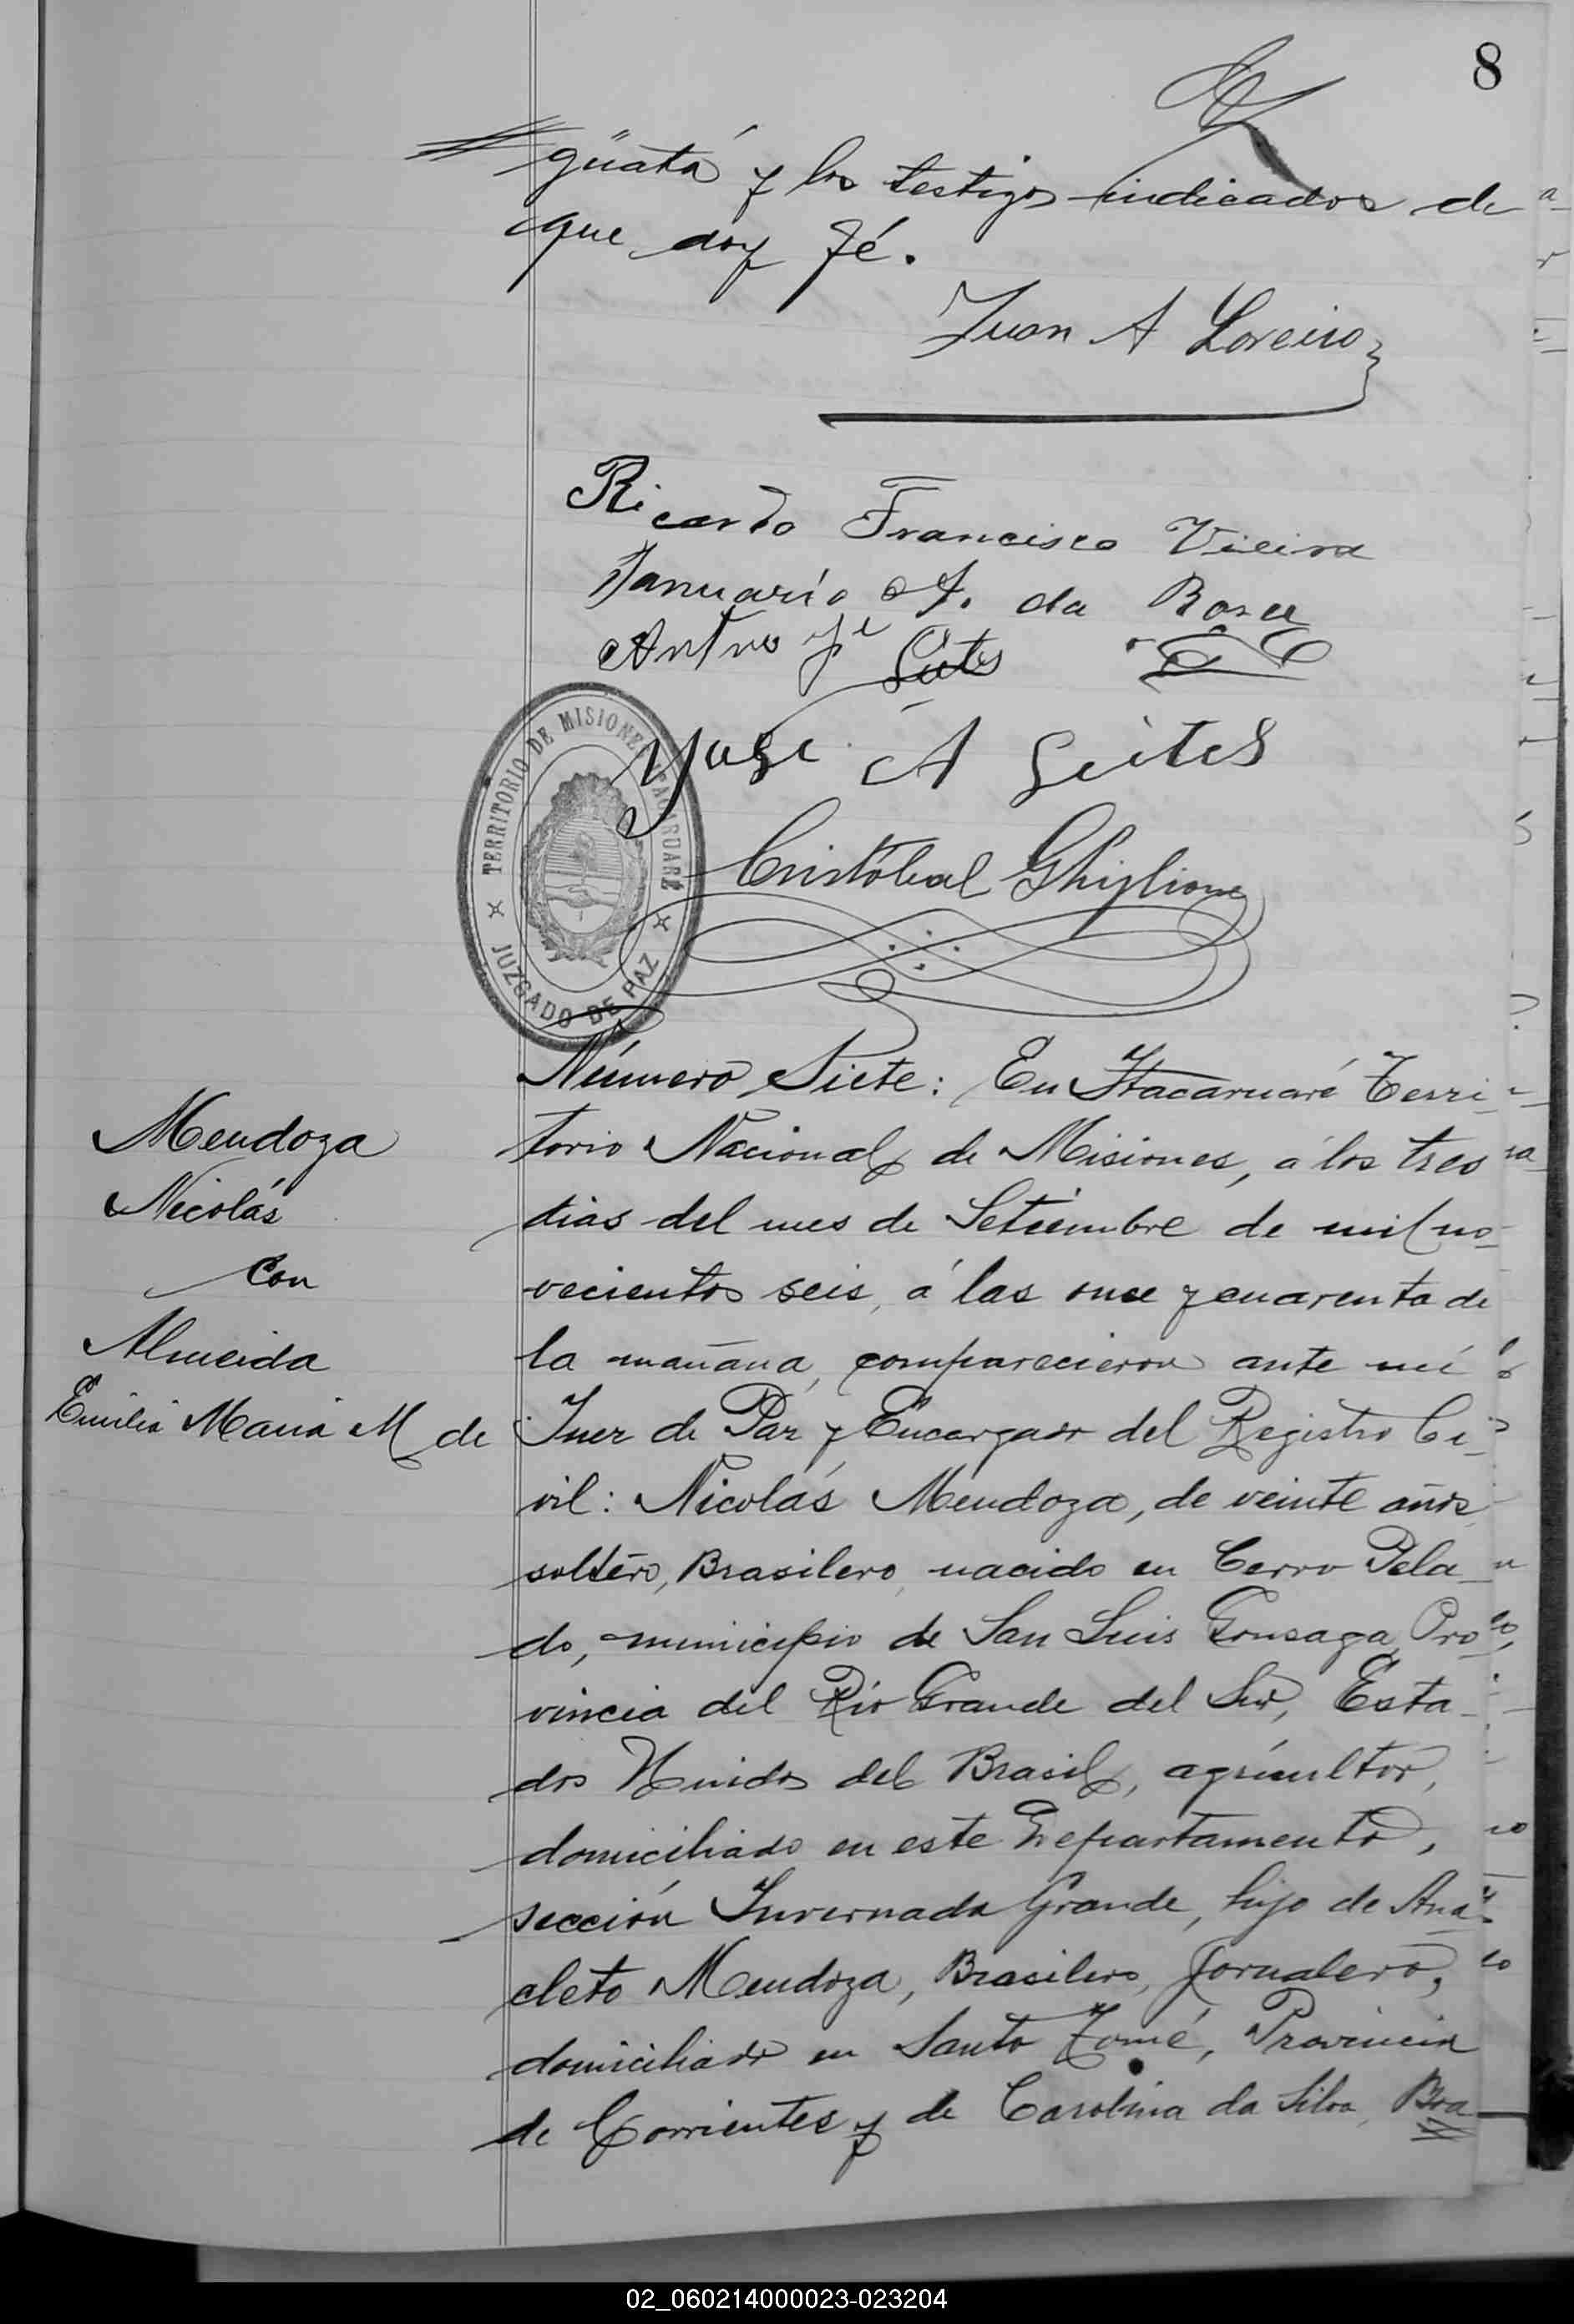 8
güatá y los testigos indicados de
que doy fé.
Juan A Loreiro
Ricardo Francisco Vieira
Januario da
José A
Cristóbal Ghiglione
TERRITORIO DE MISIONES ITACARUARÉ
JUZGADO DE PAZ
Mendoza
Nicolás
con
Almeida
Emilia Maria M de
Número Siete: En Itacaruaré Terri-
torio Nacional de Misiones, á los tres
dias del mes de Setiembre de mil no-
vecientos seis, á las once y cuarenta de
la mañana, comparecieron ante mí
Juez de Paz y Encargado del Registro Ci-
vil: Nicolás Mendoza, de veinte años,
soltéro, Brasilero, nacido en Cerro Pela-
do, municipio de San Luis Gonsaga, Pro-
vincia del Río Grande del Sur, Esta-
dos Unidos del Brasil, agricultor,
domiciliado en este Departamento,
sección Invernada Grande, hijo de Ana-
cleto Mendoza, Brasilero, Jornalero,
domiciliado en Santo Tomé, Provincia
de Corrientes y de Carolina da Silva, Bra
02_060214000023-023204